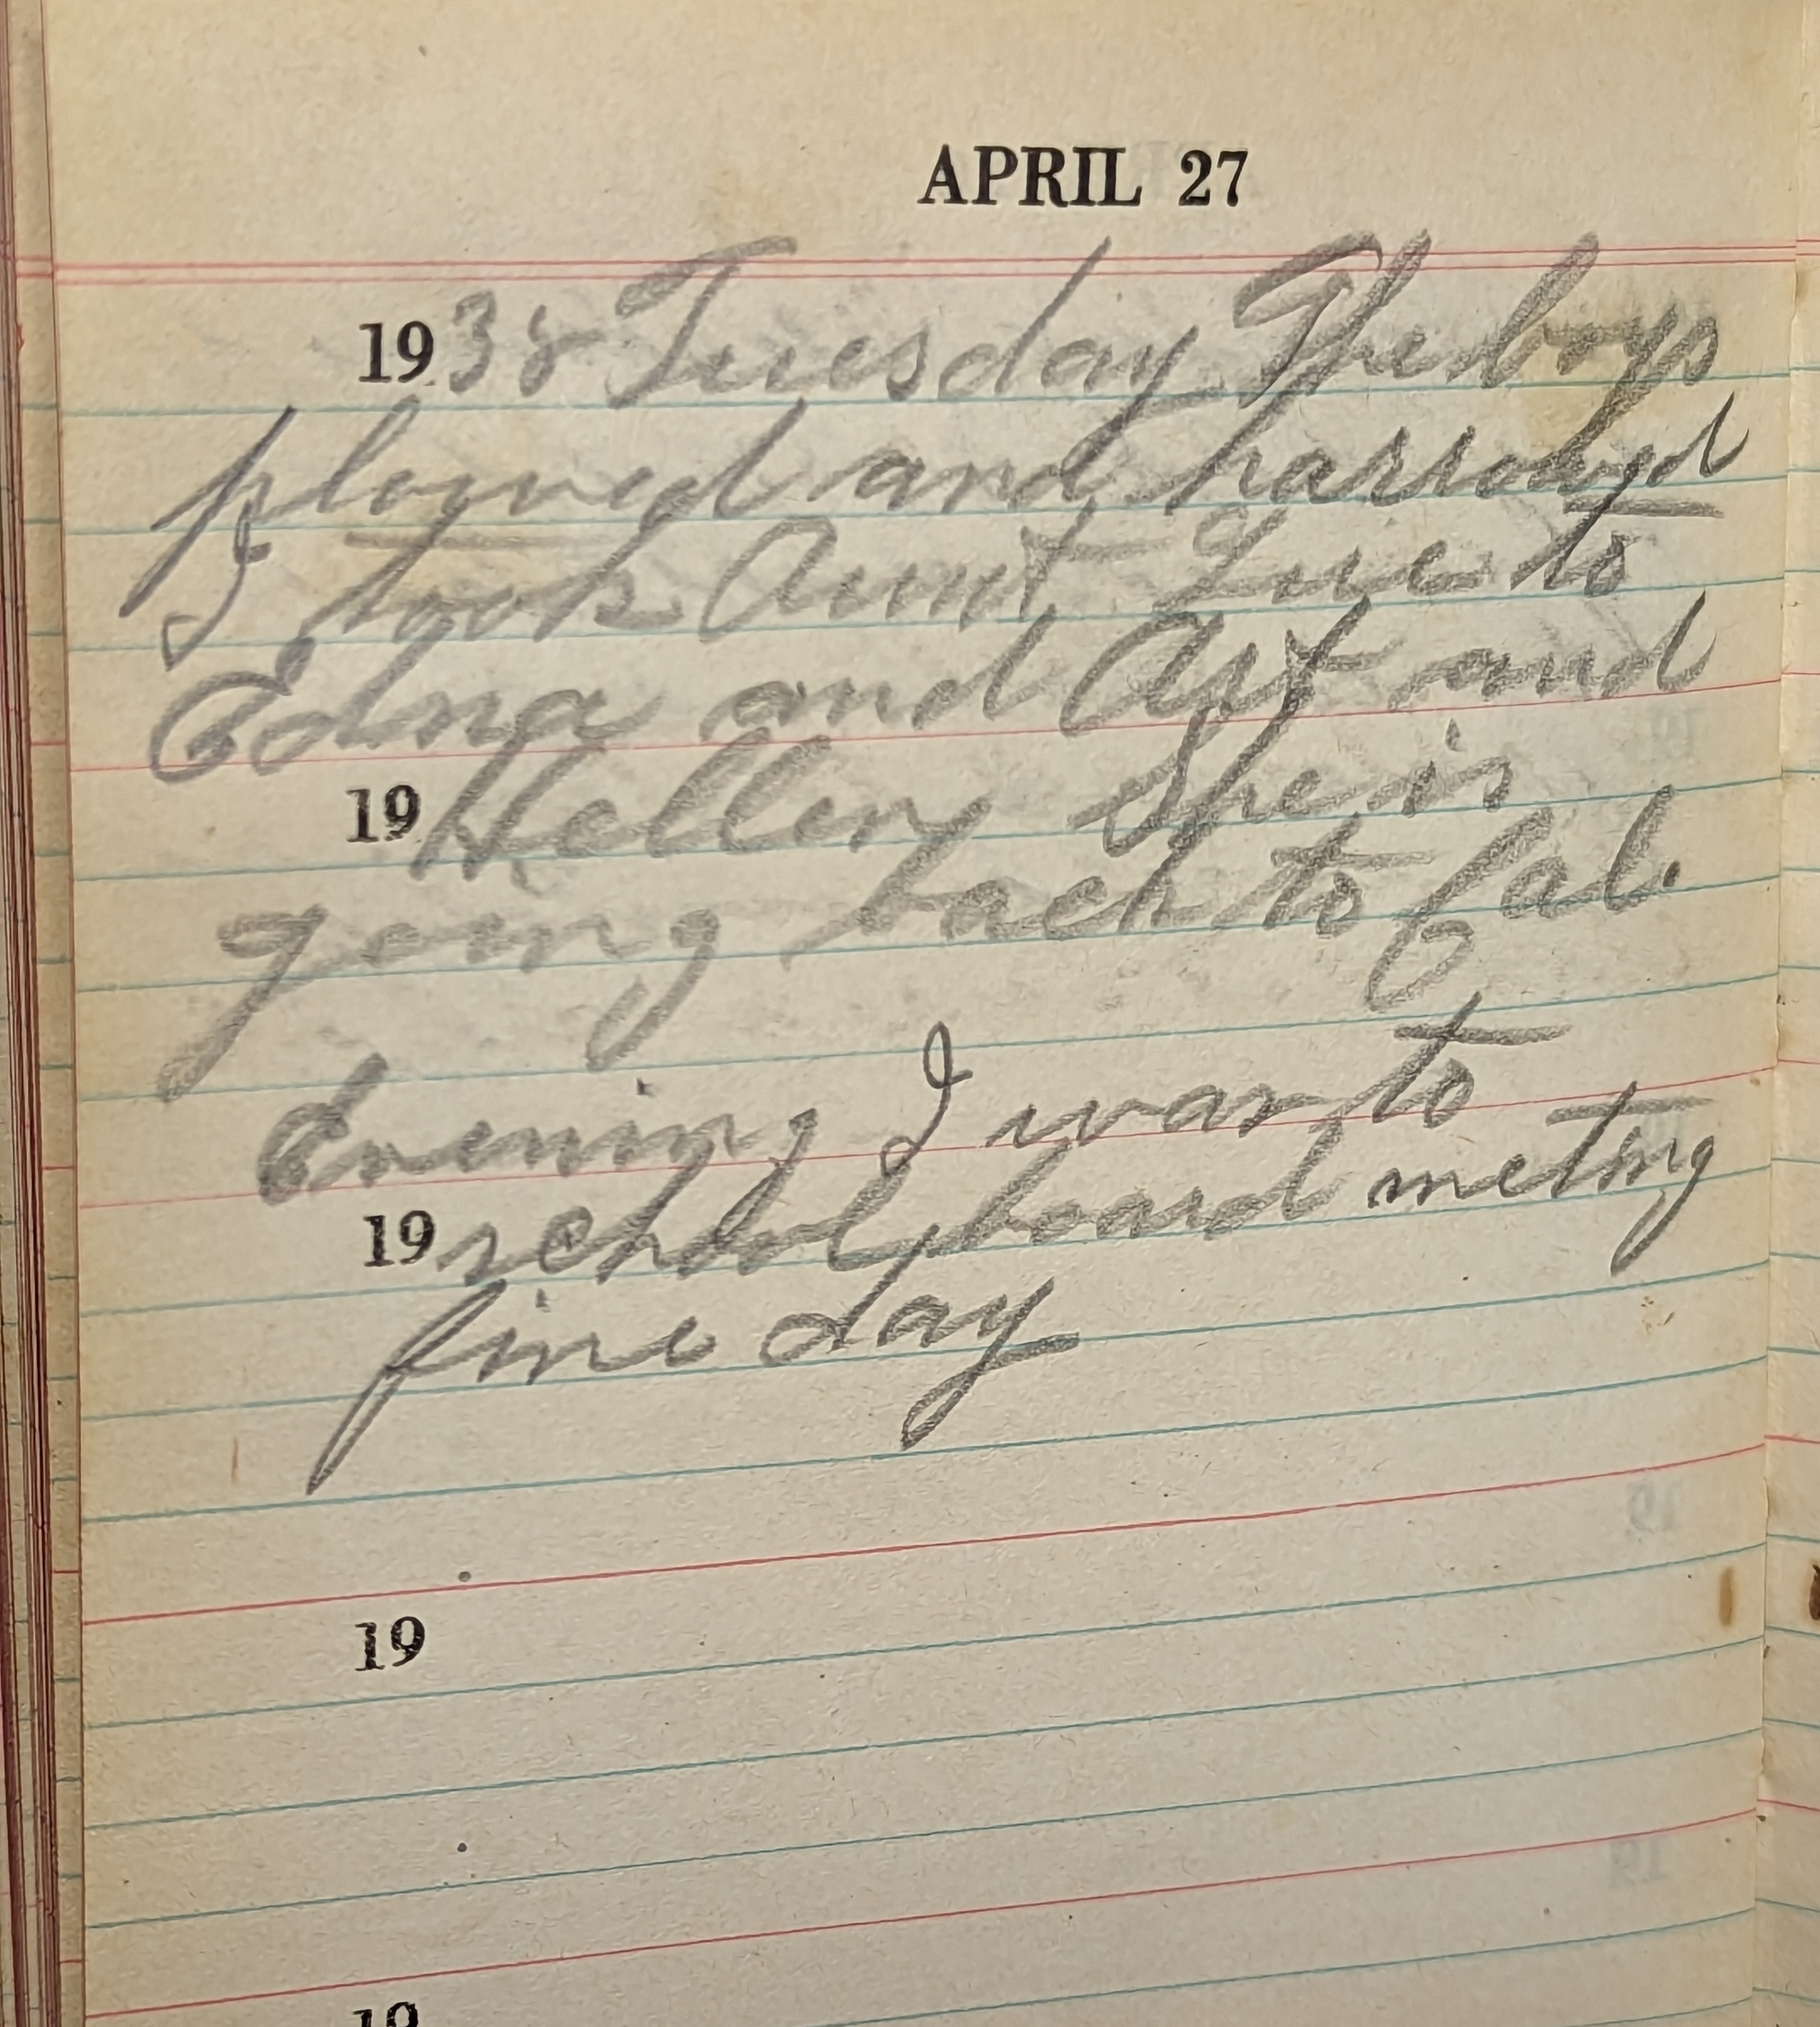 APRIL 27
1938 Tuesday The boys
plowed and harrowed
I took Aunt to
Edna and Art and
19 Hellen She is
going back to Cal.
Evening I was to
19 school board meting
fine day
19
19